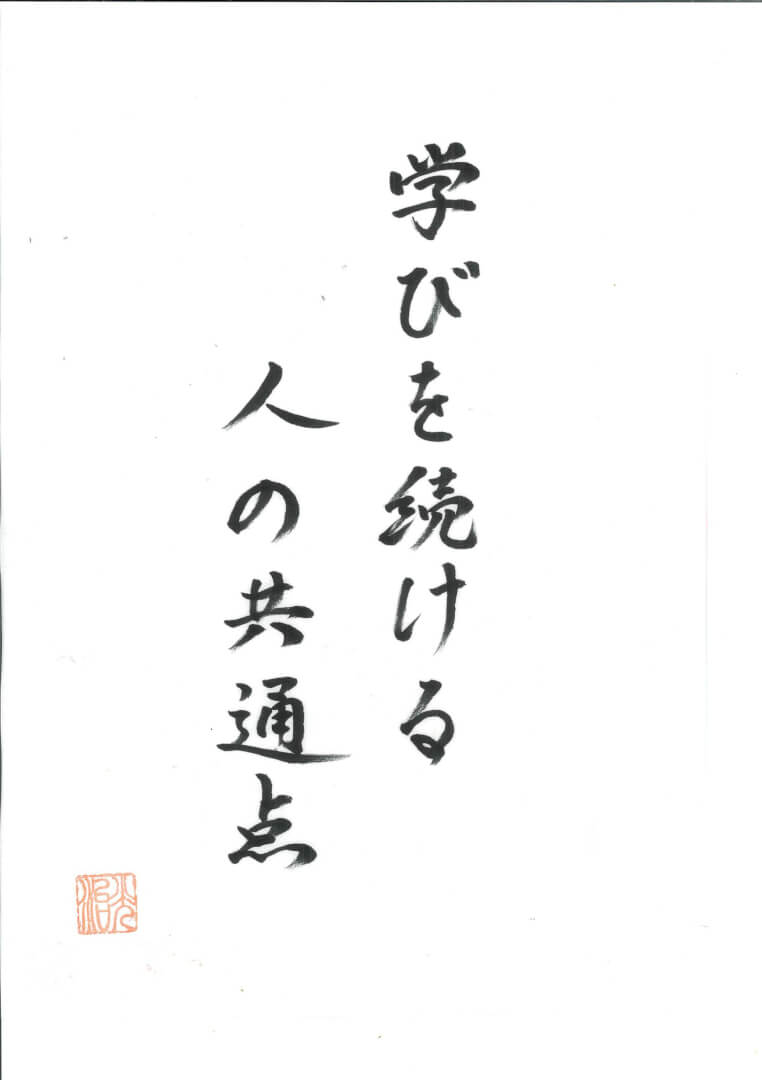 学びを続ける
人の共通点